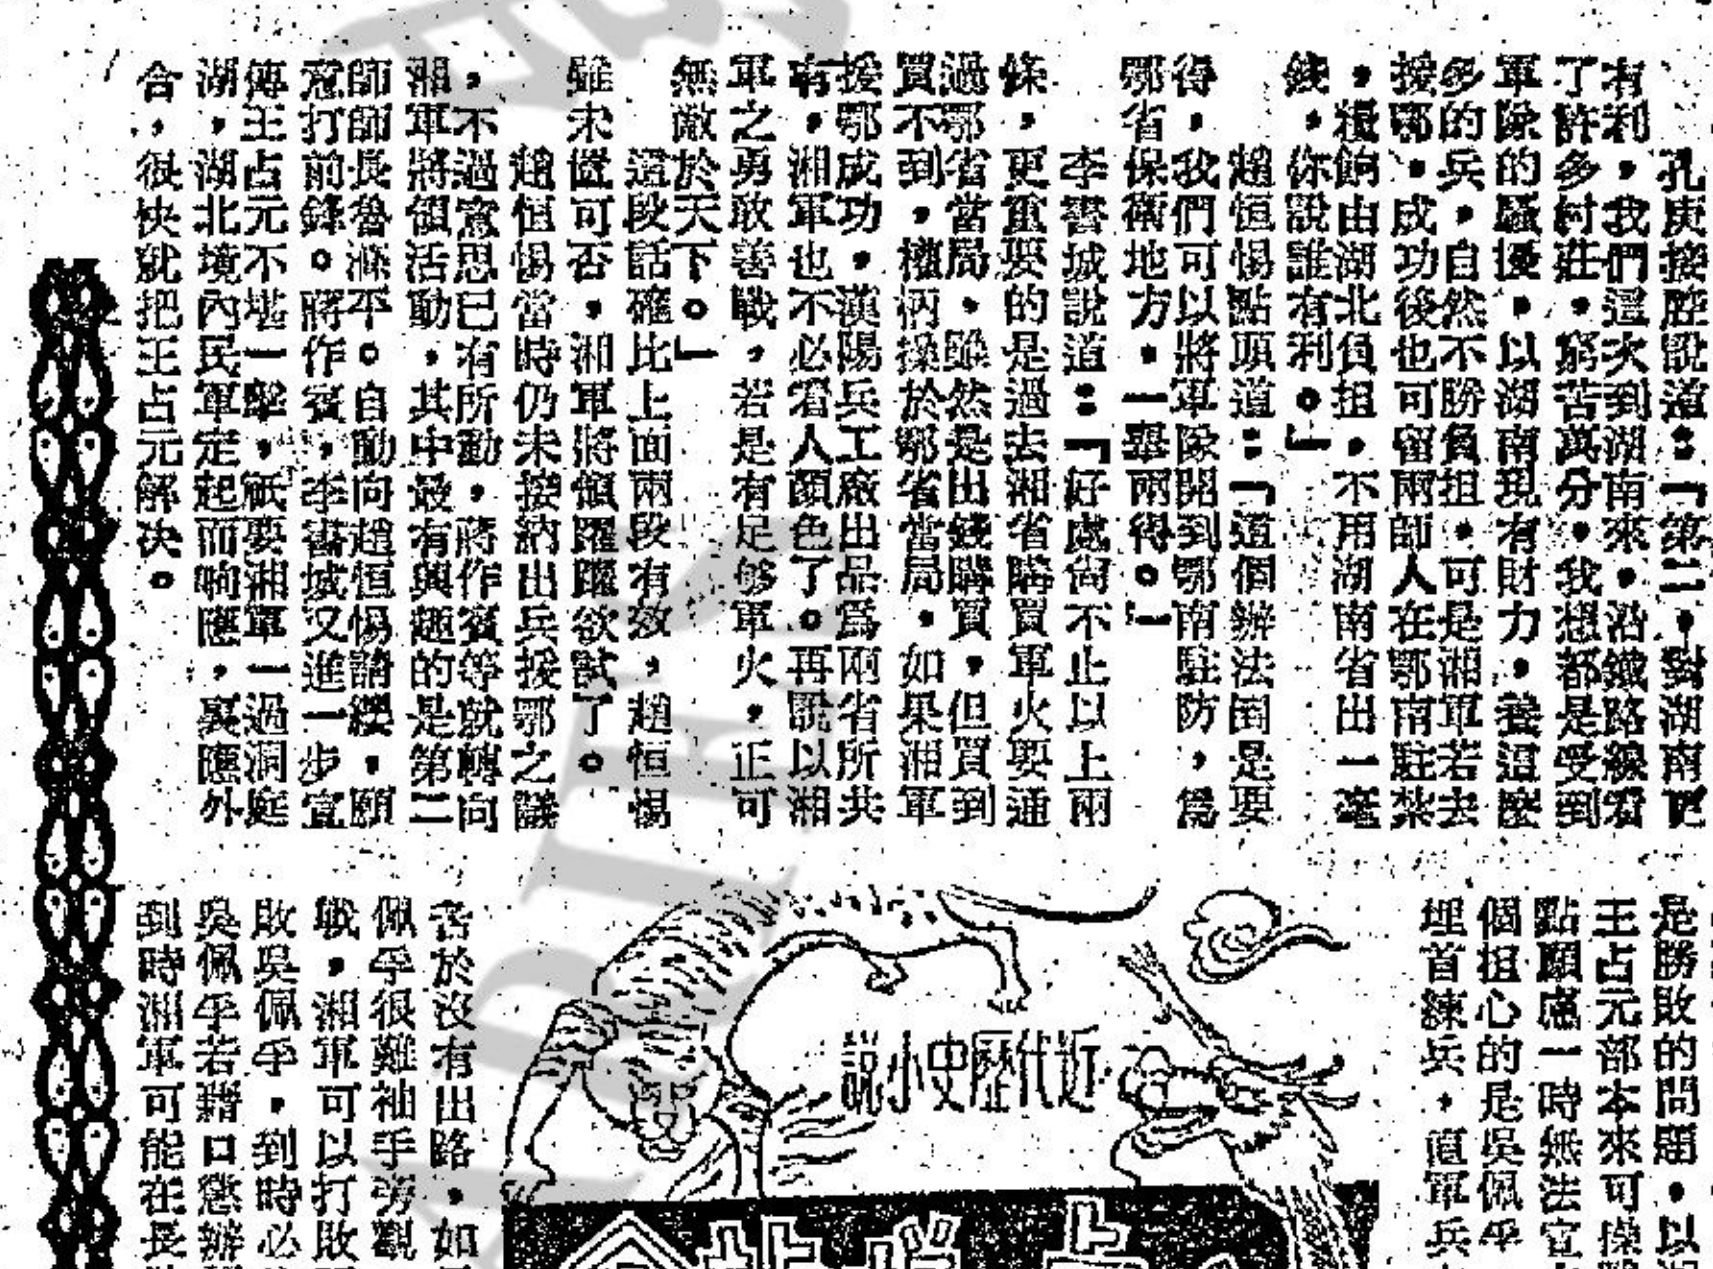 孔庚接腔說道：「第二，對湖南更
有利，我們這次到湖南來，沿鐵路線看
了許多村莊，窮苦萬分，我想都是受到
軍隊的騷擾，以湖南現有財力，養這麽
多的兵，自然不勝負担，可是湘軍若去
援鄂，成功後也可留兩師人在鄂南駐紮
，糧餉由湖北負担，不用湖南省出一毫
錢，你說誰有利。」
趙恒惕點頭道：「這個辦法固是要
得，我們可以將軍隊開到鄂南駐防，爲
鄂省保衛地方，一舉兩得。」
李書城說道：「好處尙不止以上兩
條，更重要的是過去湘省購買軍火要通
過鄂省當局，雖然是出錢購買，但買到
買不到，權柄操於鄂省當局，如果湘軍
援鄂成功，漢陽兵工廠出品爲兩省所共
有，湘軍也不必看人顏色了。再說以湘
軍之勇敢善戰，若是有足够軍火，正可
無敵於天下。」
這段話確比上面兩段有效，趙恒惕
雖未置可否，湘軍將領躍躍欲試了。
趙恒惕當時仍未接納出兵援鄂之議
，不過意思已有所動，蔣作賓等就轉向
湘軍將領活動，其中最有興趣的是第二
師師長魯滌平。自動向趙恒惕請纓，願
意打前鋒。蔣作賓，李書城又進一步宣
傳王占元不堪一擊，祇要湘軍一過洞庭
湖，湖北境內民軍定起而响應，裏應外
合，很快就把王占元解决。
是勝敗的問題，以
王占元部本來可操
點顧慮一時無法官
個担心的是吳佩孚
埋首練兵，直軍兵
近代歷史小說
苦於沒有出路，如
佩孚很難袖手旁觀
戰，湘軍可以打敗
敗吳佩孚，到時必
吳佩孚若藉口懲辦
到時湘軍可能在長